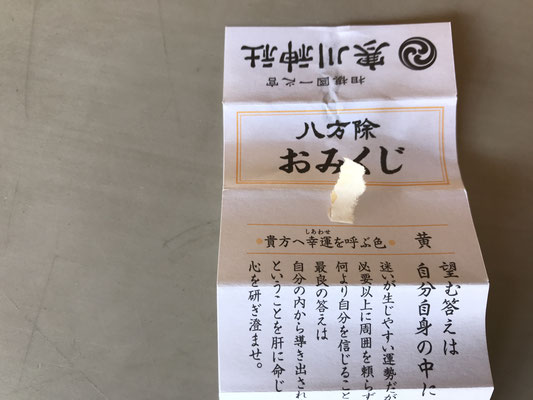 寒川神社
相模國一之宮
八方除
おみくじ
貴方へ幸運を呼ぶ色 黄
しあわせ
望む答えは
自分自身の中に
迷いが生じやすい運勢だが
必要以上に周囲を頼らず
何より自分を信じること
最良の答えは
自分の内から導き出され
ということを肝に命じ
心を研ぎ澄ませ。